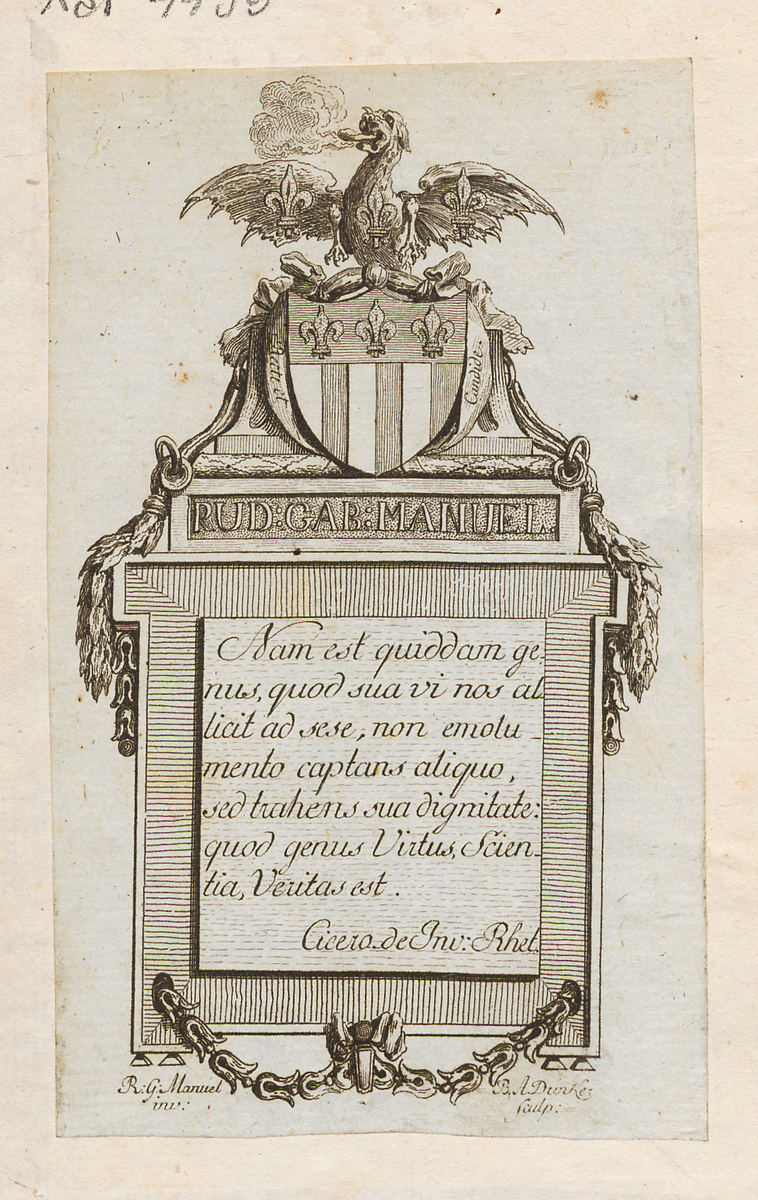 Candide
RUD: GAB: MANUEL.
Nam est quiddam ge-
nus, quod sua vi nos al-
licit ad sese, non emolu-
mento captans aliquo,
sed trahens sua dignitate:
quod genus Virtus, Scien-
tia, Veritas est.
Cicero de Inv: Rhet.
R: G. Manuel
inv:
B. A. Dunker
sculp: